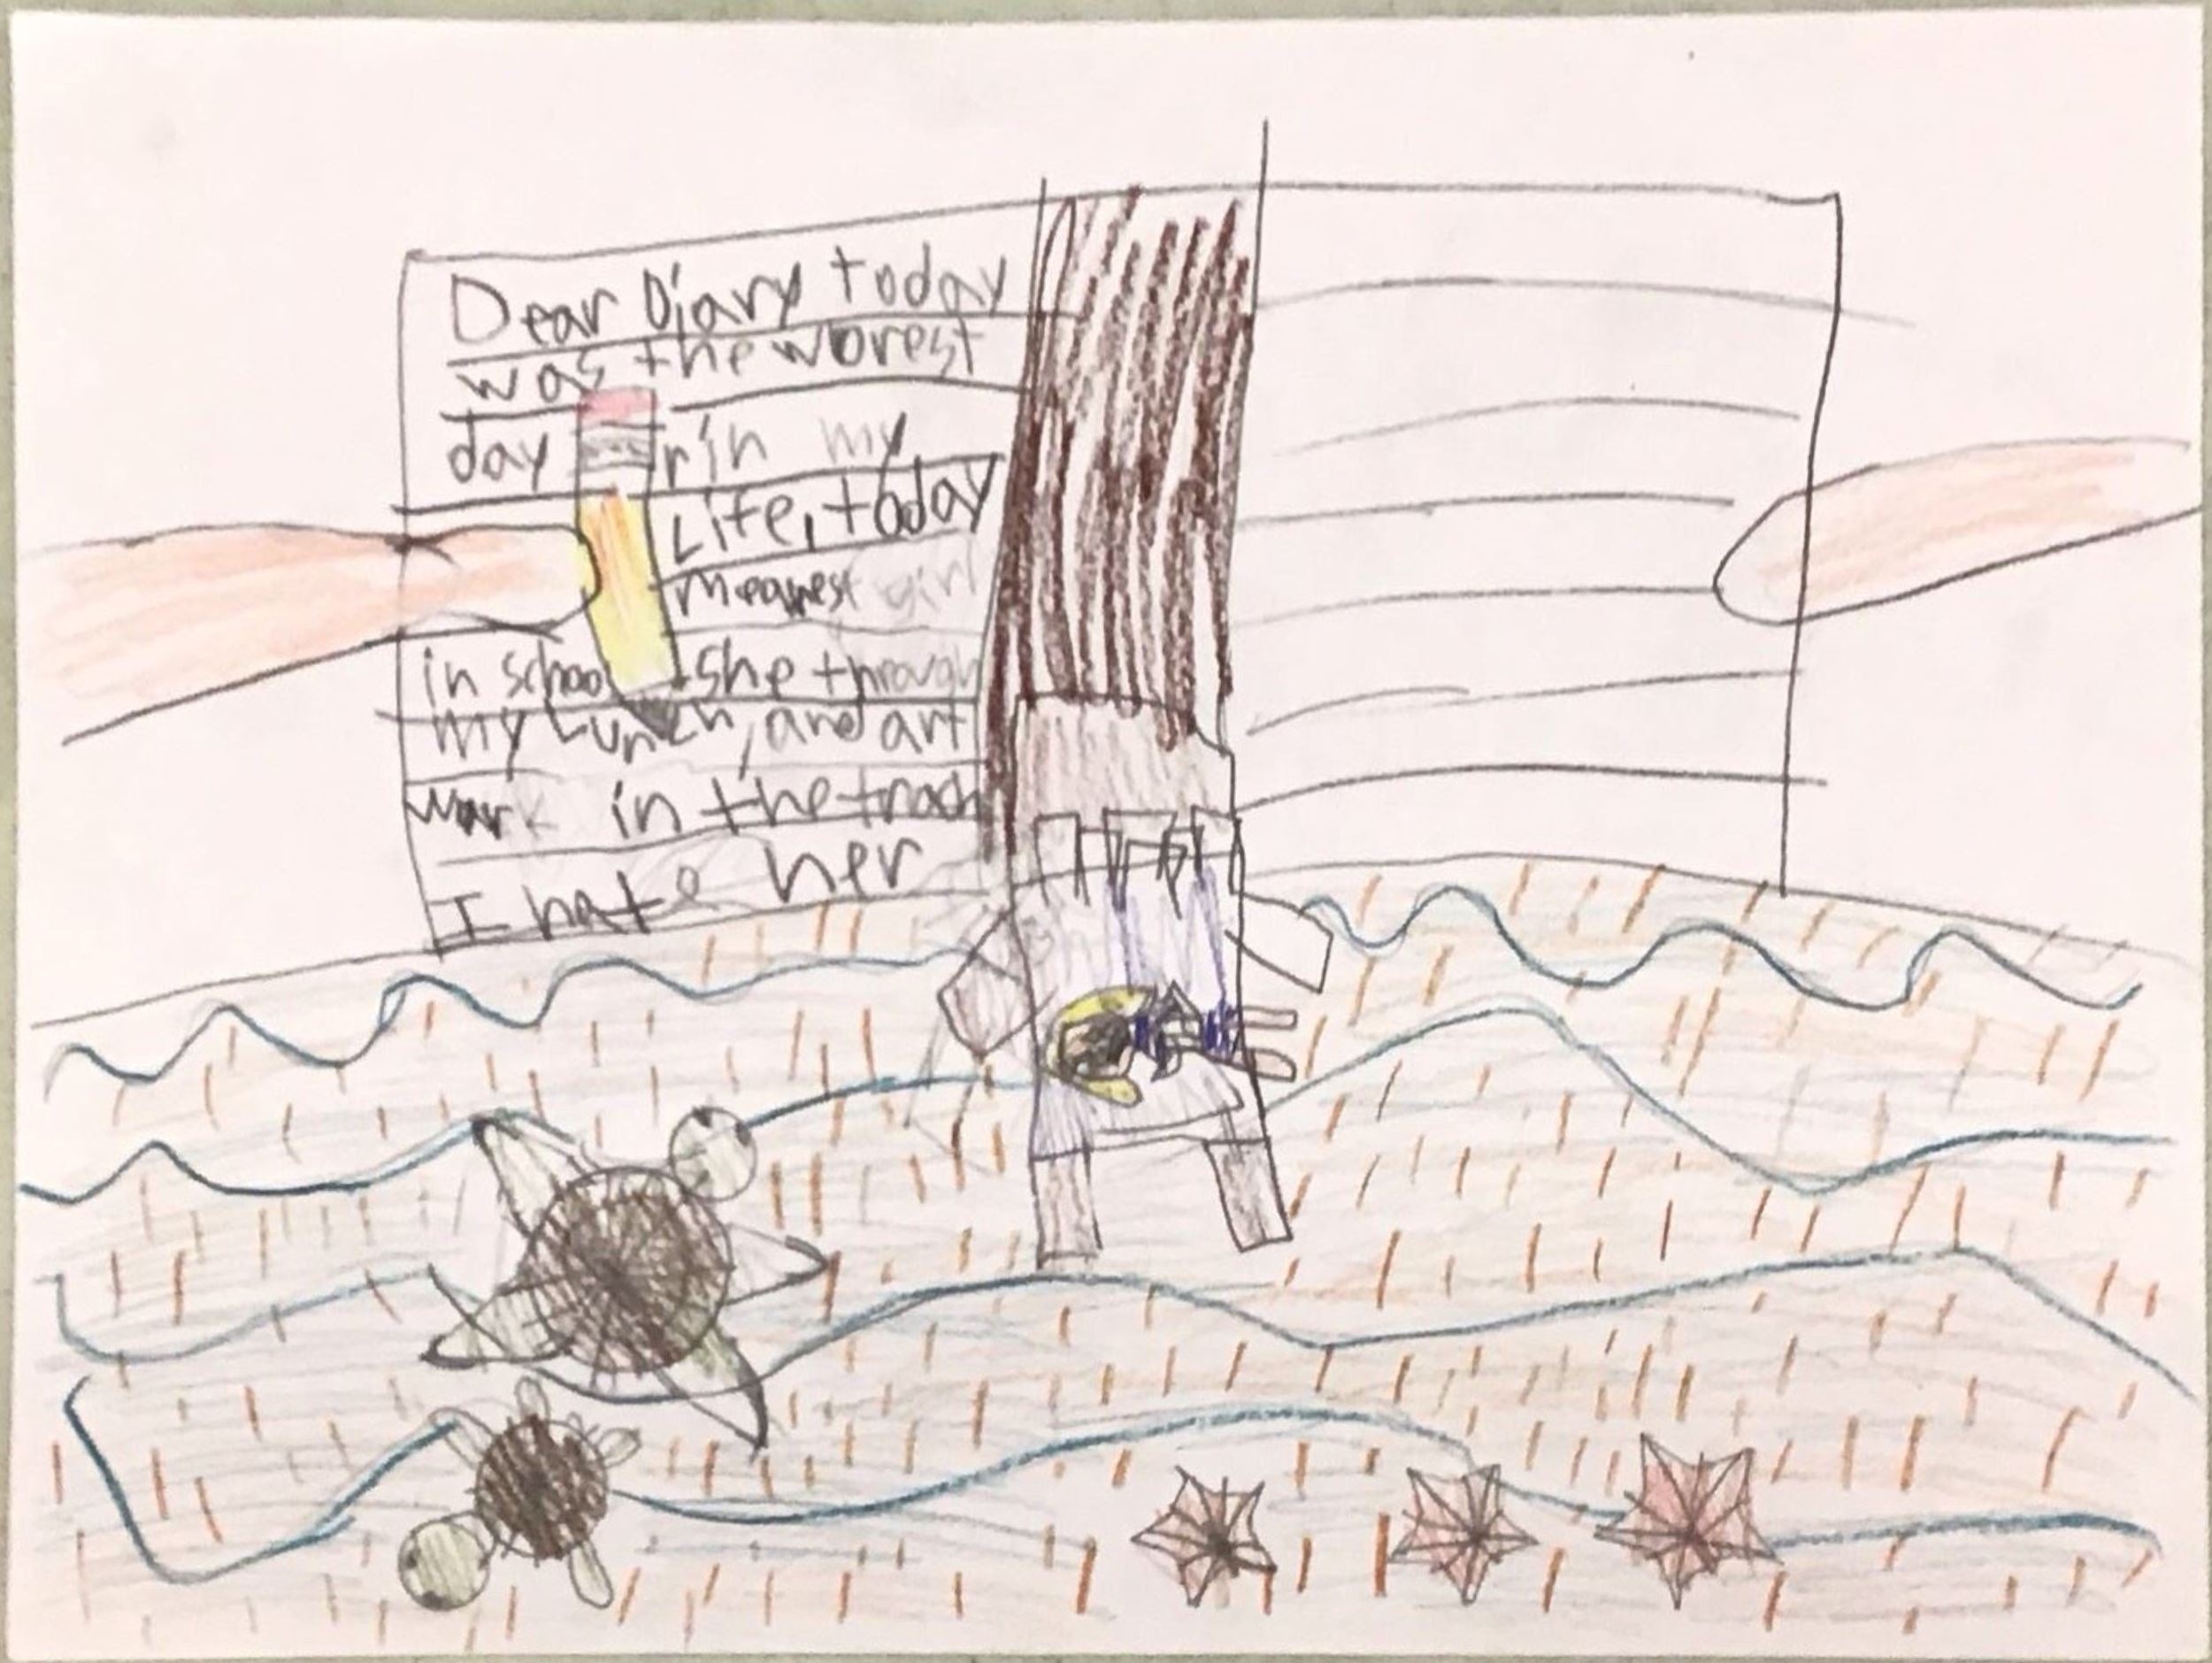 Dear Diary today
was the worest
day in my
Life, today
meanest girl
in school she through
my Lunch, and art
work in the trach
I hate her